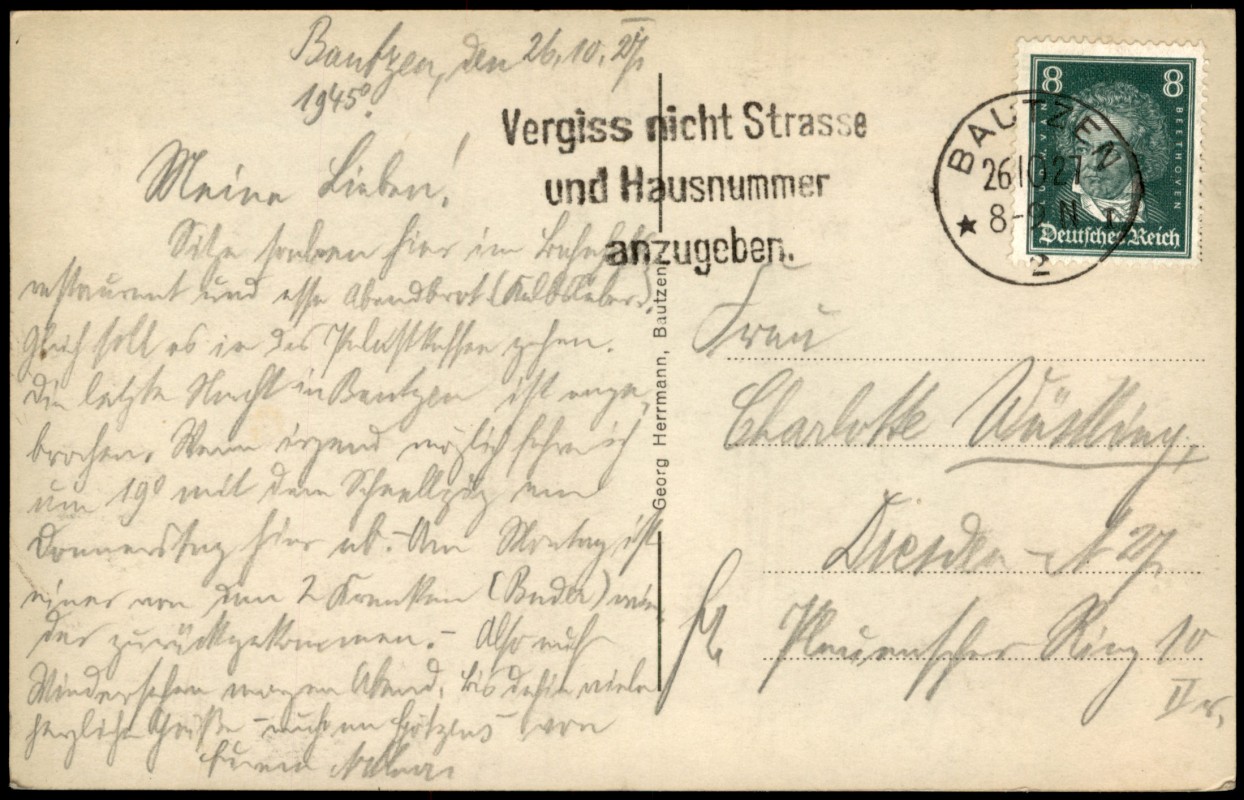 Bautzen, den 26.10.27.
19⁴⁵
Vergiss nicht Strasse
und Hausnummer
anzugeben.
BAUTZEN
26.10.27
8-9 N
2
8 8
LUDWIG VAN BEETHOVEN
Deutsches Reich
Meine Lieben!
Sitze soeben hier im Bahnhofs
restaurant und esse Abendbrot (Kalbsleber).
Gleich soll es in das gehen.
Die letzte Nacht in Bautzen ist ange
brochen. Wenn irgend möglich fahre ich
um 19⁰ mit dem Schnellzug am
Donnerstag hier ab. – Am Montag ist
einer von den 2 Kranken (Bader) wie
der zurückgekommen. – Also auf
Wiedersehen morgen Abend, bis dahin viele
herzliche Grüße – auch an – von
Eurem
Georg Herrmann, Bautzen
Frau
Charlotte Wüstling,
Dresden – A 27.
Plauenscher Ring 10
IV r.